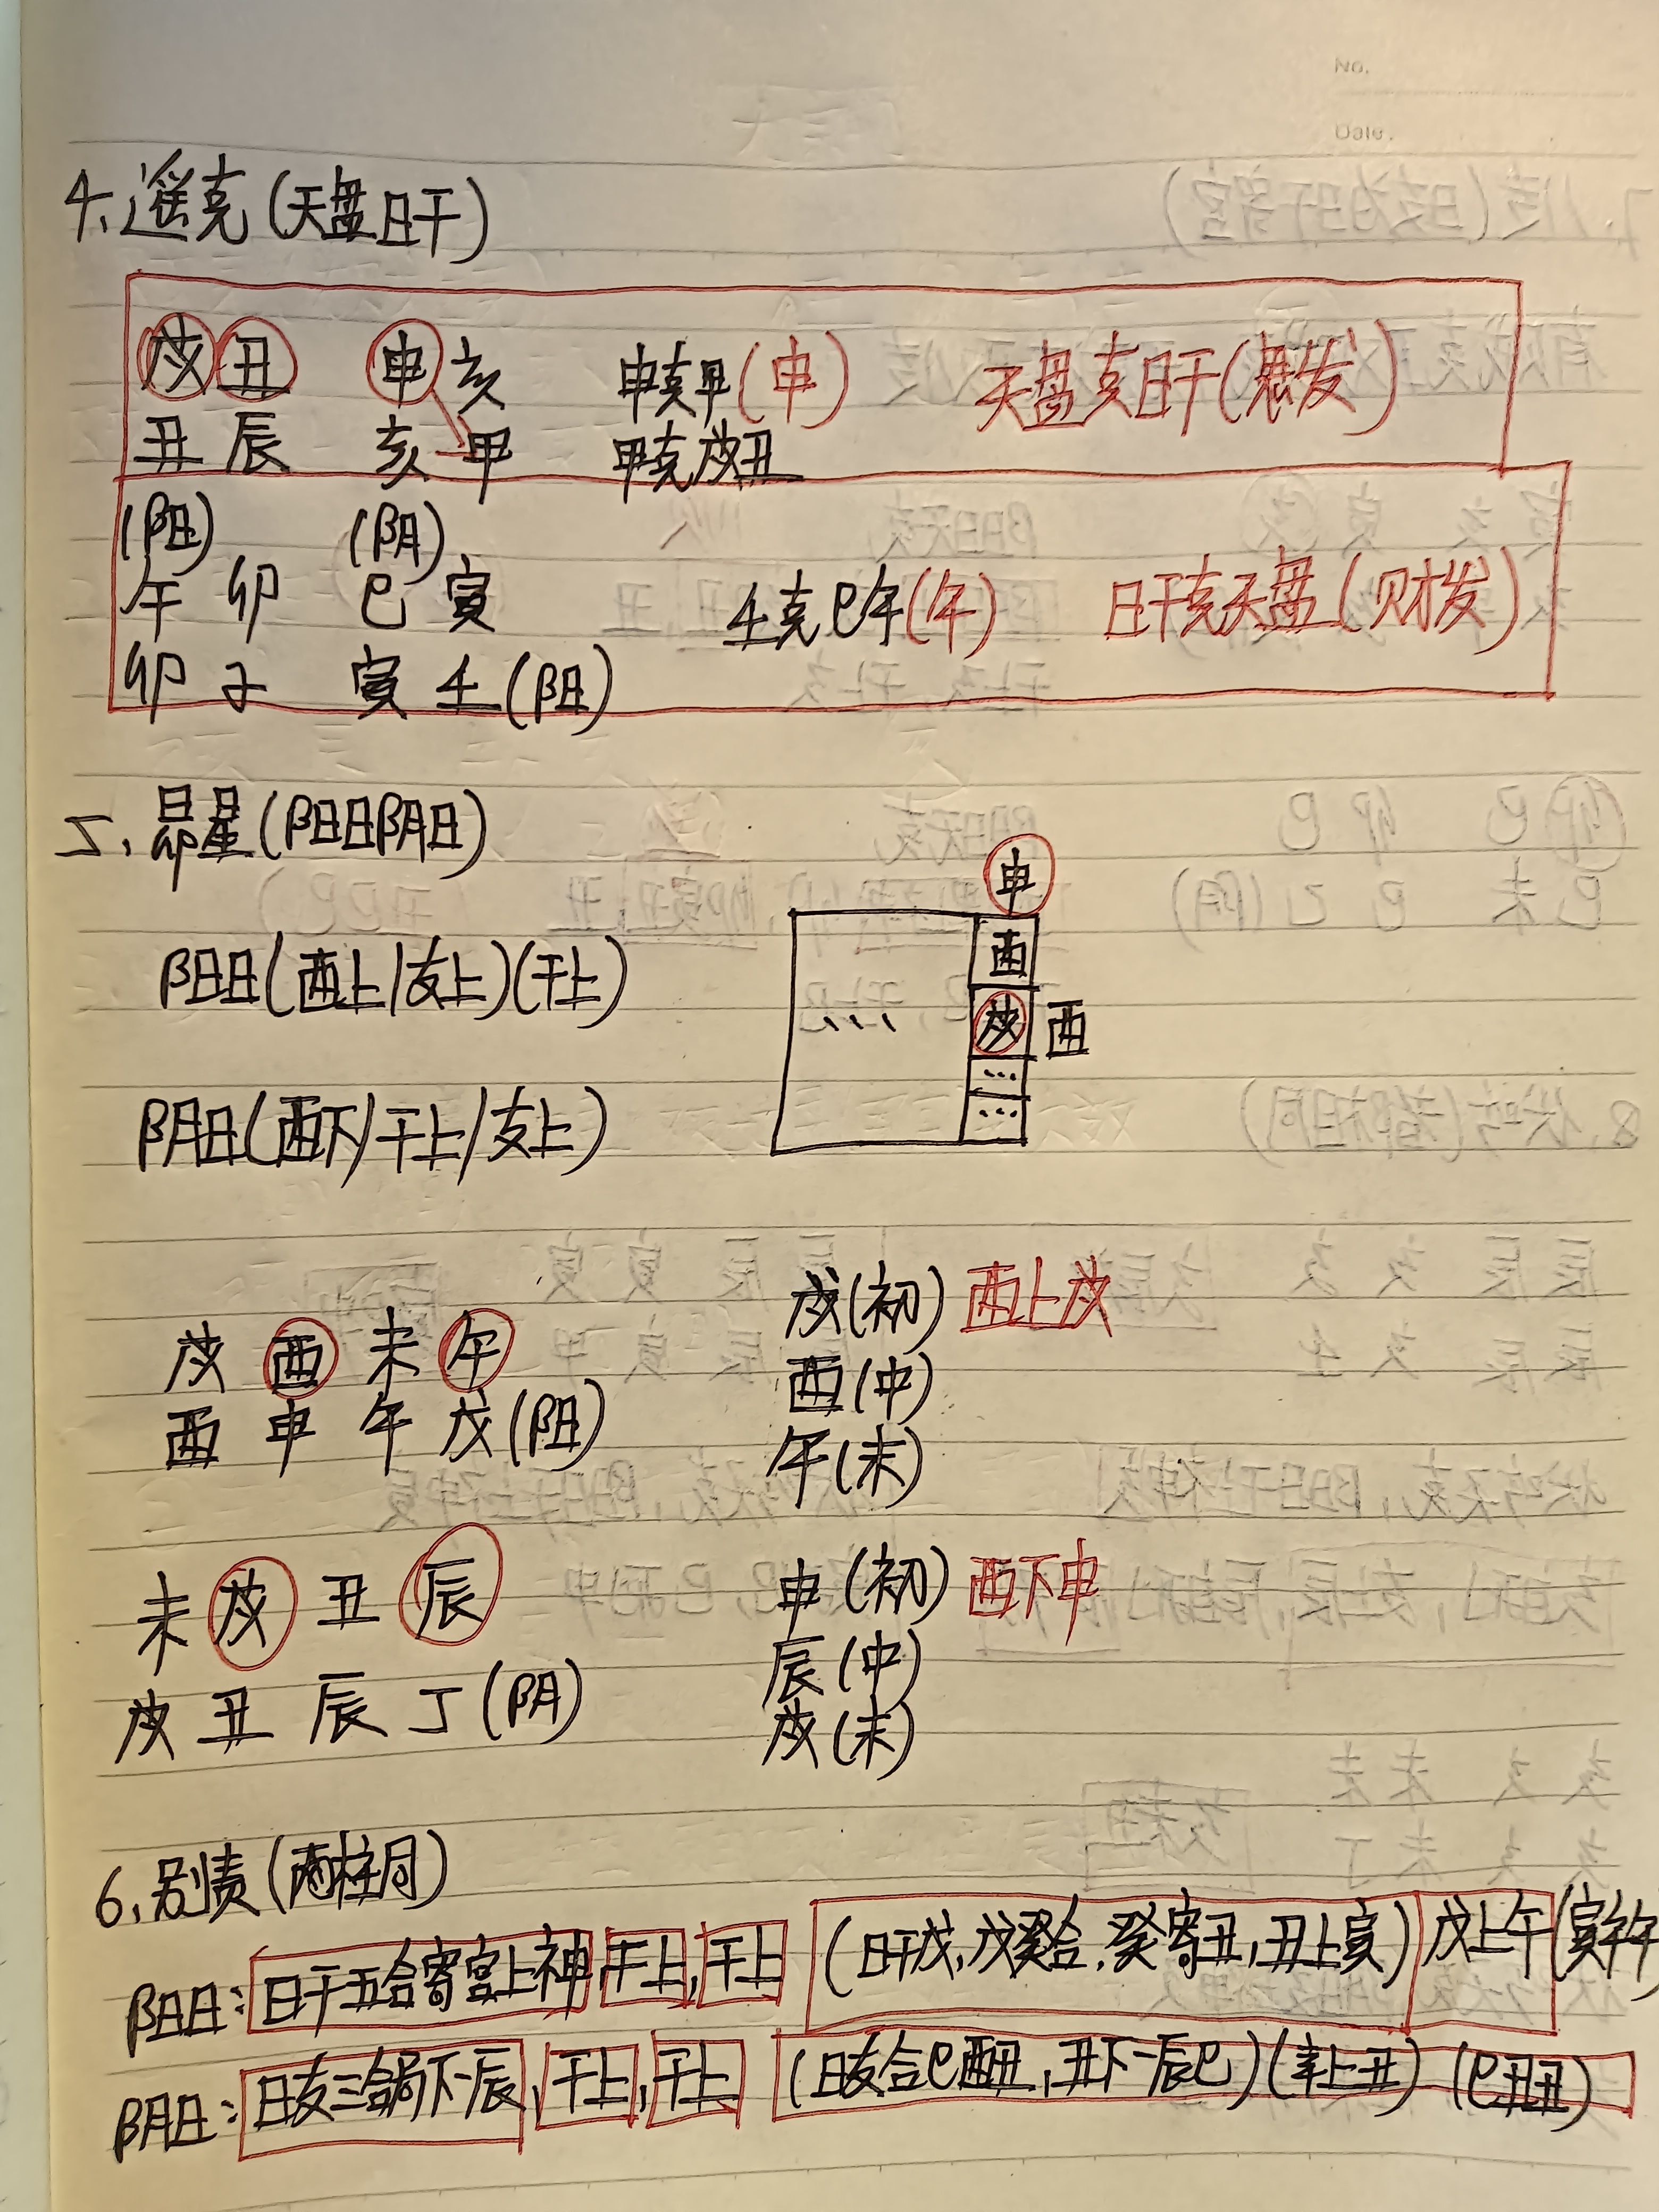 No.
Date.
4、遥克(天盘日干)
戌 丑 申 亥 申克甲(申) 天盘克日干(鬼发)
丑 辰 亥 甲 甲克戌丑
(阳) (阴)
午 卯 巳 寅 壬克巳午(午) 日干克天盘(财发)
卯 子 寅 壬(阳)
5、昴星(阳日阴日)
申
酉
阳日(酉上/支上)(干上)
戌 酉
...
...
阴日(酉下/干上/支上)
戌(初) 酉上戌
戌 酉 未 午
酉(中)
酉 申 午 戊(阳)
午(末)
未 戌 丑 辰 申(初) 酉下申
辰(中)
戌 丑 辰 丁(阴) 戌(末)
6、别责(两柱同)
阳日:日干五合寄宫上神,干上,干上 (日干戊,戊癸合,癸寄丑,丑上寅)戊上午(寅午午
阴日:日支三合局下一辰,干上,干上 (日支合巳酉丑,丑下一辰巳)(辛上丑)(巳丑丑)